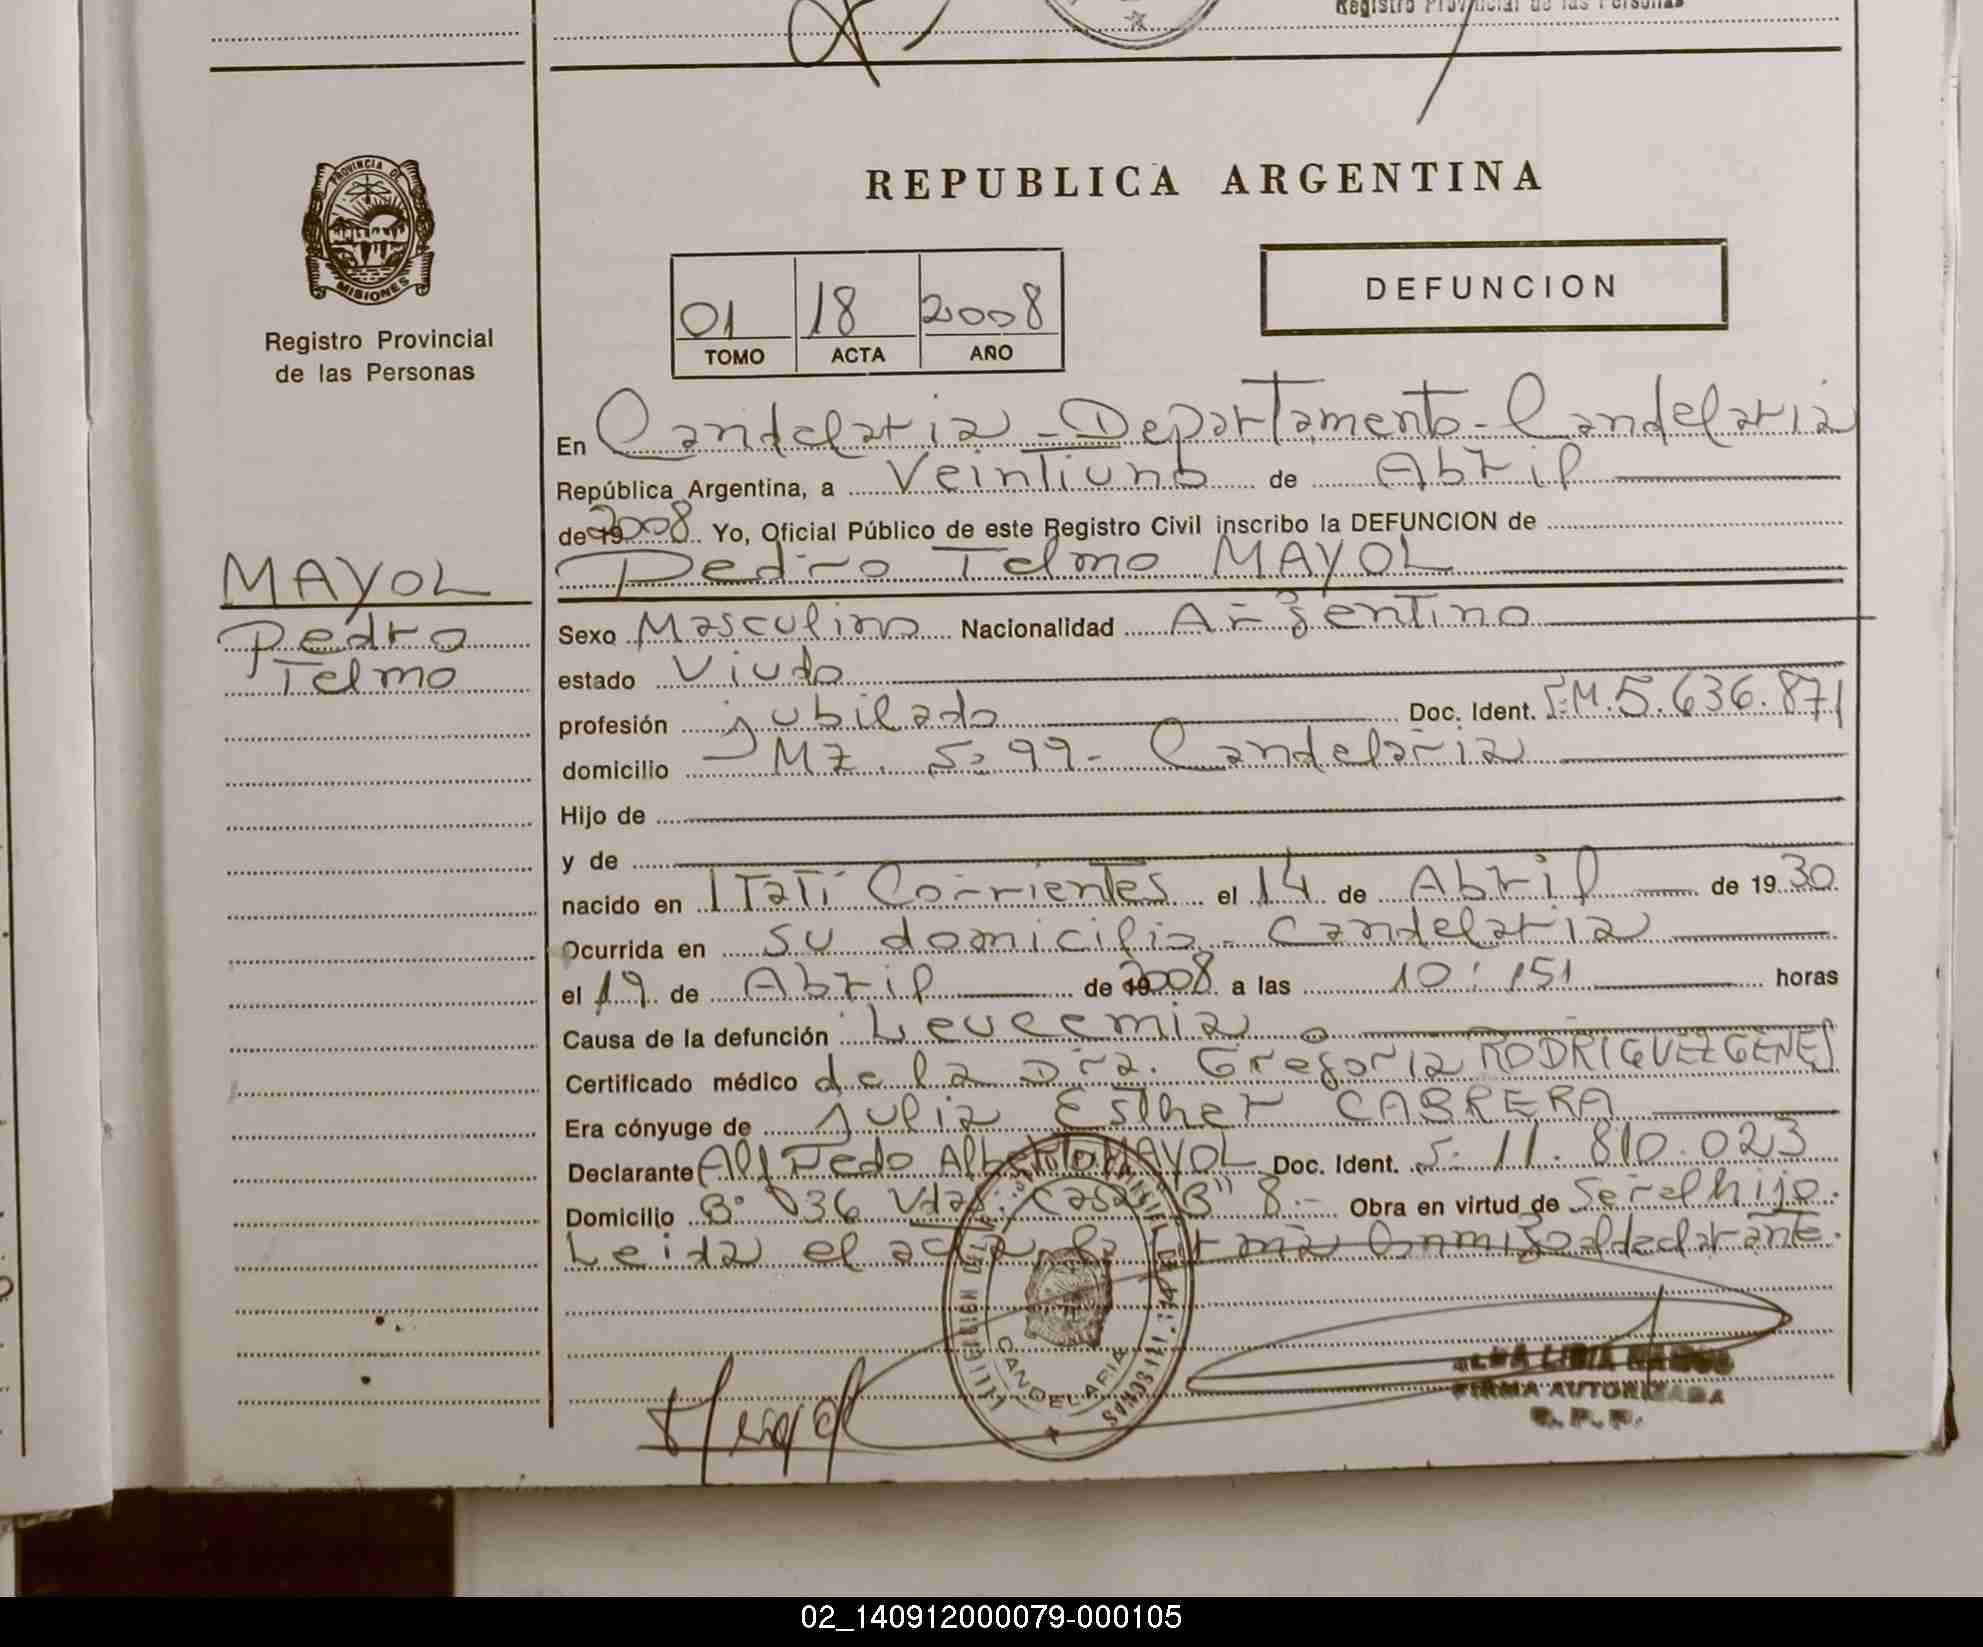 Registro Provincial de las Personas
PROVINCIA DE
MISIONES
Registro Provincial
de las Personas
REPUBLICA ARGENTINA
01 18 2008
TOMO ACTA AÑO
DEFUNCION
En Candelaria - Departamento - Candelaria
República Argentina, a Veintiuno de Abril
de 2008 Yo, Oficial Público de este Registro Civil inscribo la DEFUNCION de
Pedro Telmo MAYOL
MAYOL
Pedro
Telmo
Sexo Masculino Nacionalidad Argentino
estado Viudo
profesión jubilado Doc. Ident. M. 5.636.871
domicilio Mz. 99 - Candelaria
Hijo de
y de
nacido en Itatí Corrientes el 14 de Abril de 1930
Ocurrida en su domicilio - Candelaria
el 19 de Abril de 2008 a las 10:15 horas
Causa de la defunción Leucemia
Certificado médico de la Dra. Gregoria RODRIGUEZ GENES
Era cónyuge de Julia Esther CABRERA
Declarante Alfredo Alberto MAYOL Doc. Ident. 11.810.023
Domicilio B° 036 Vdas. casa "B" 8 - Obra en virtud de Ser el hijo.
Leida el acta, la firma Conmigo el declarante.
CANDELARIA
FIRMA AUTORIZADA
02_140912000079-000105